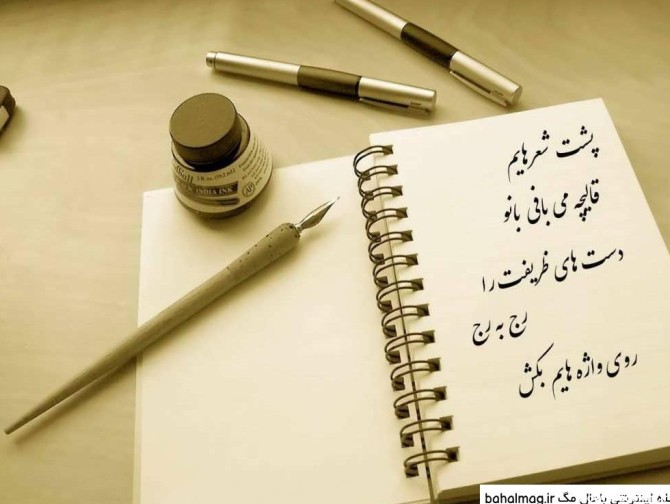 پشت شعرهایم
قالیچه می بافی بانو
دست های ظریفت را
رج به رج
روی واژه هایم بکش
INDIA INK
اینترنتی باحال مگ bahalmag.ir